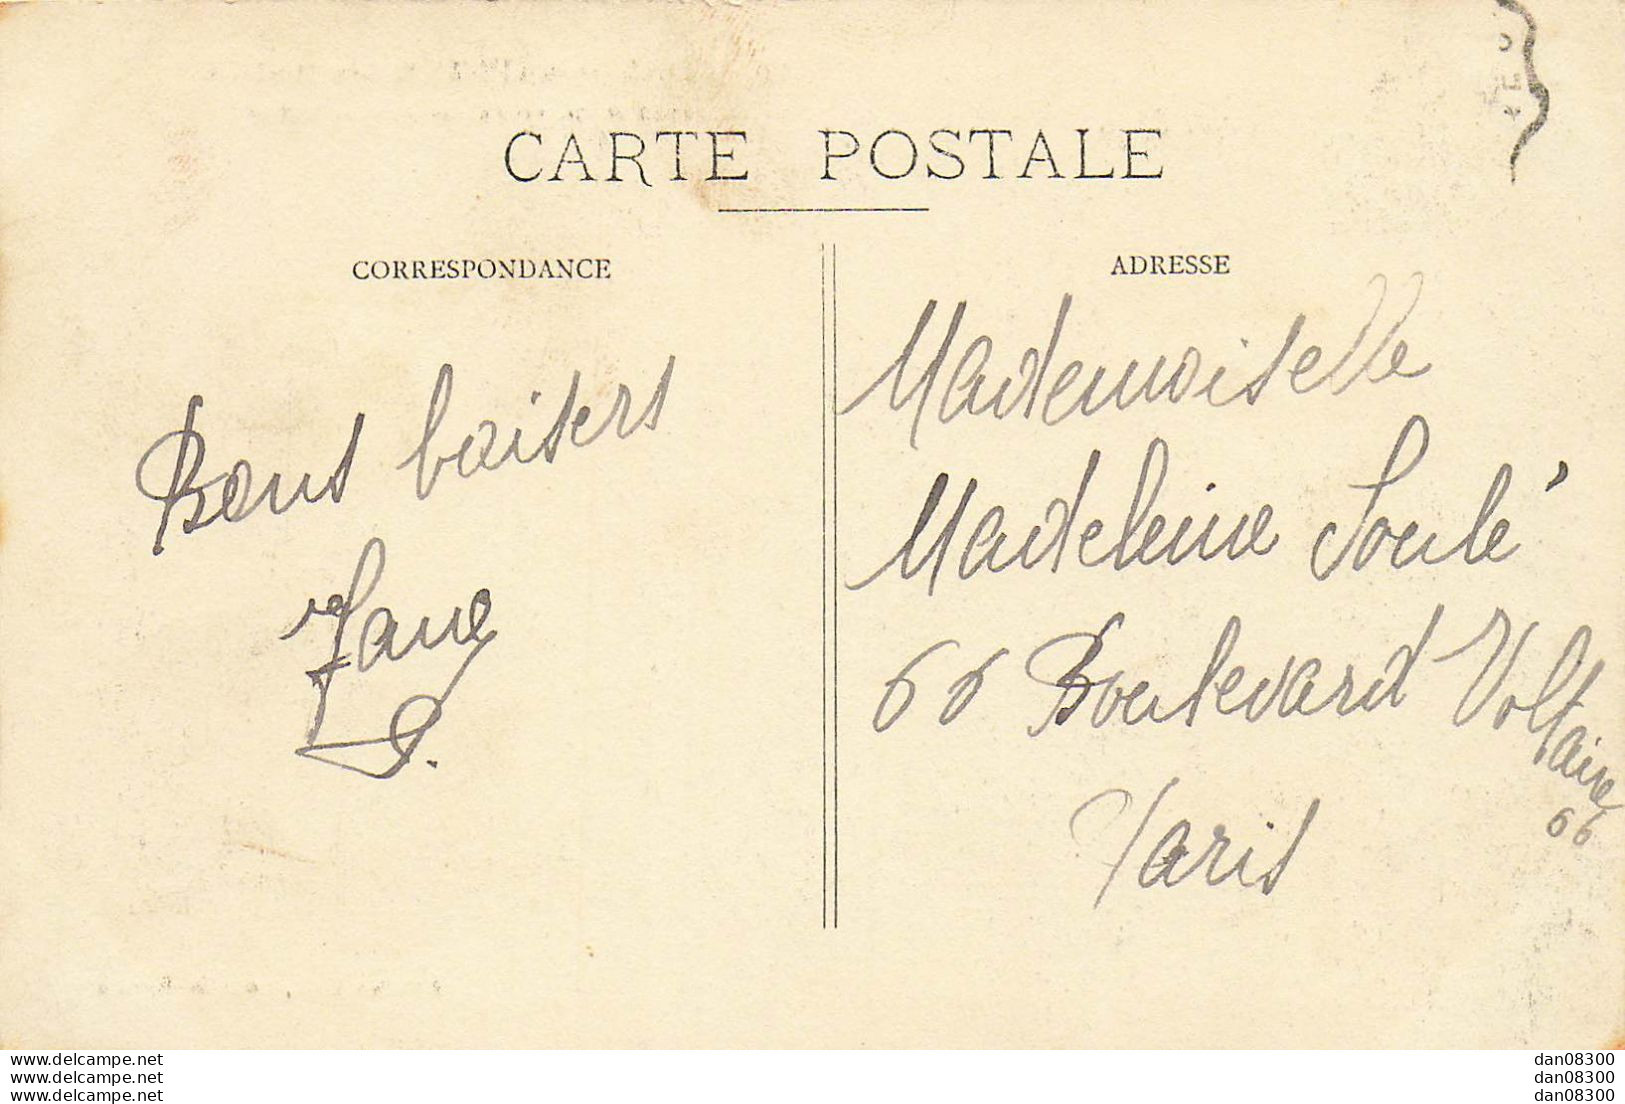 CARTE POSTALE
CORRESPONDANCE
Bons baisers
Jane
ADRESSE
Mademoiselle
Madeleine Soulé
66 Boulevard Voltaire
66
Paris
www.delcampe.net
www.delcampe.net
www.delcampe.net
dan08300
dan08300
dan08300